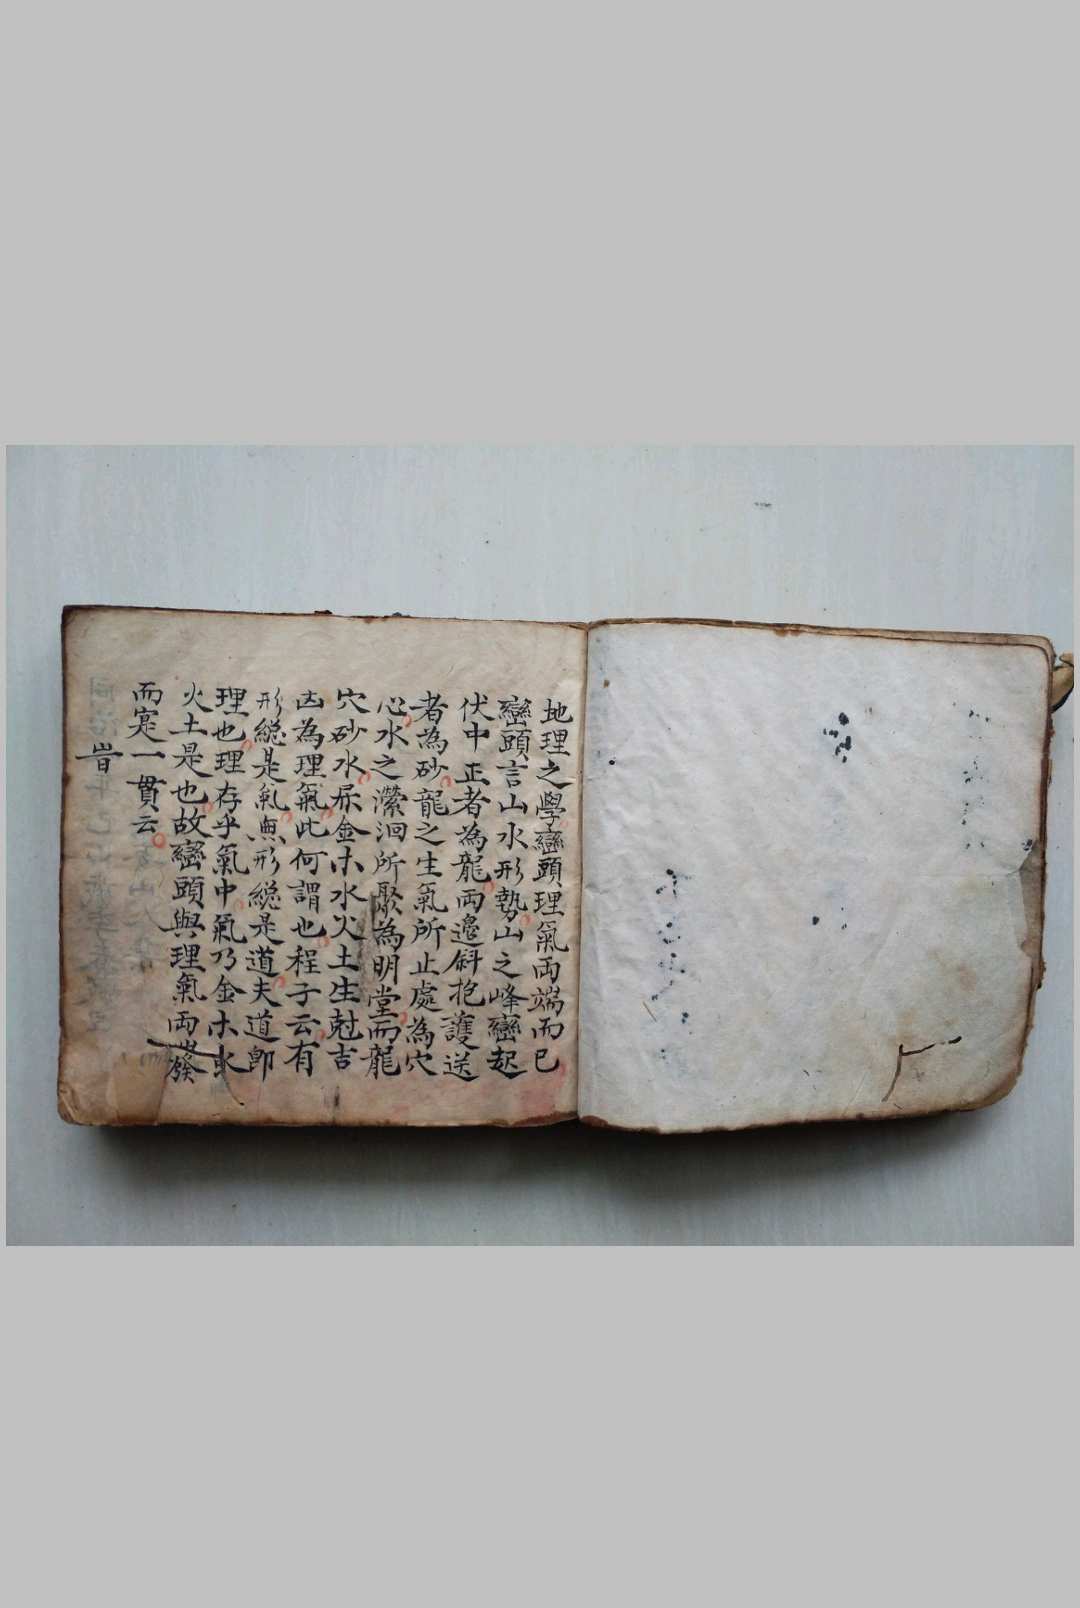 地理之學巒頭理氣両端而已
巒頭言山水形勢山之峰巒起
伏中正者為龍両邉斜抱護送
者為砂龍之生氣所止處為穴
心水之瀠洄所聚為明堂而龍
穴砂水屎金木水火土生尅吉
凶為理氣此何謂也程子云有
形縂是氣無形縂是道夫道卽
理也理存乎氣中氣乃金木水
火土是也故巒頭與理氣両發
而寔一貫云
旹